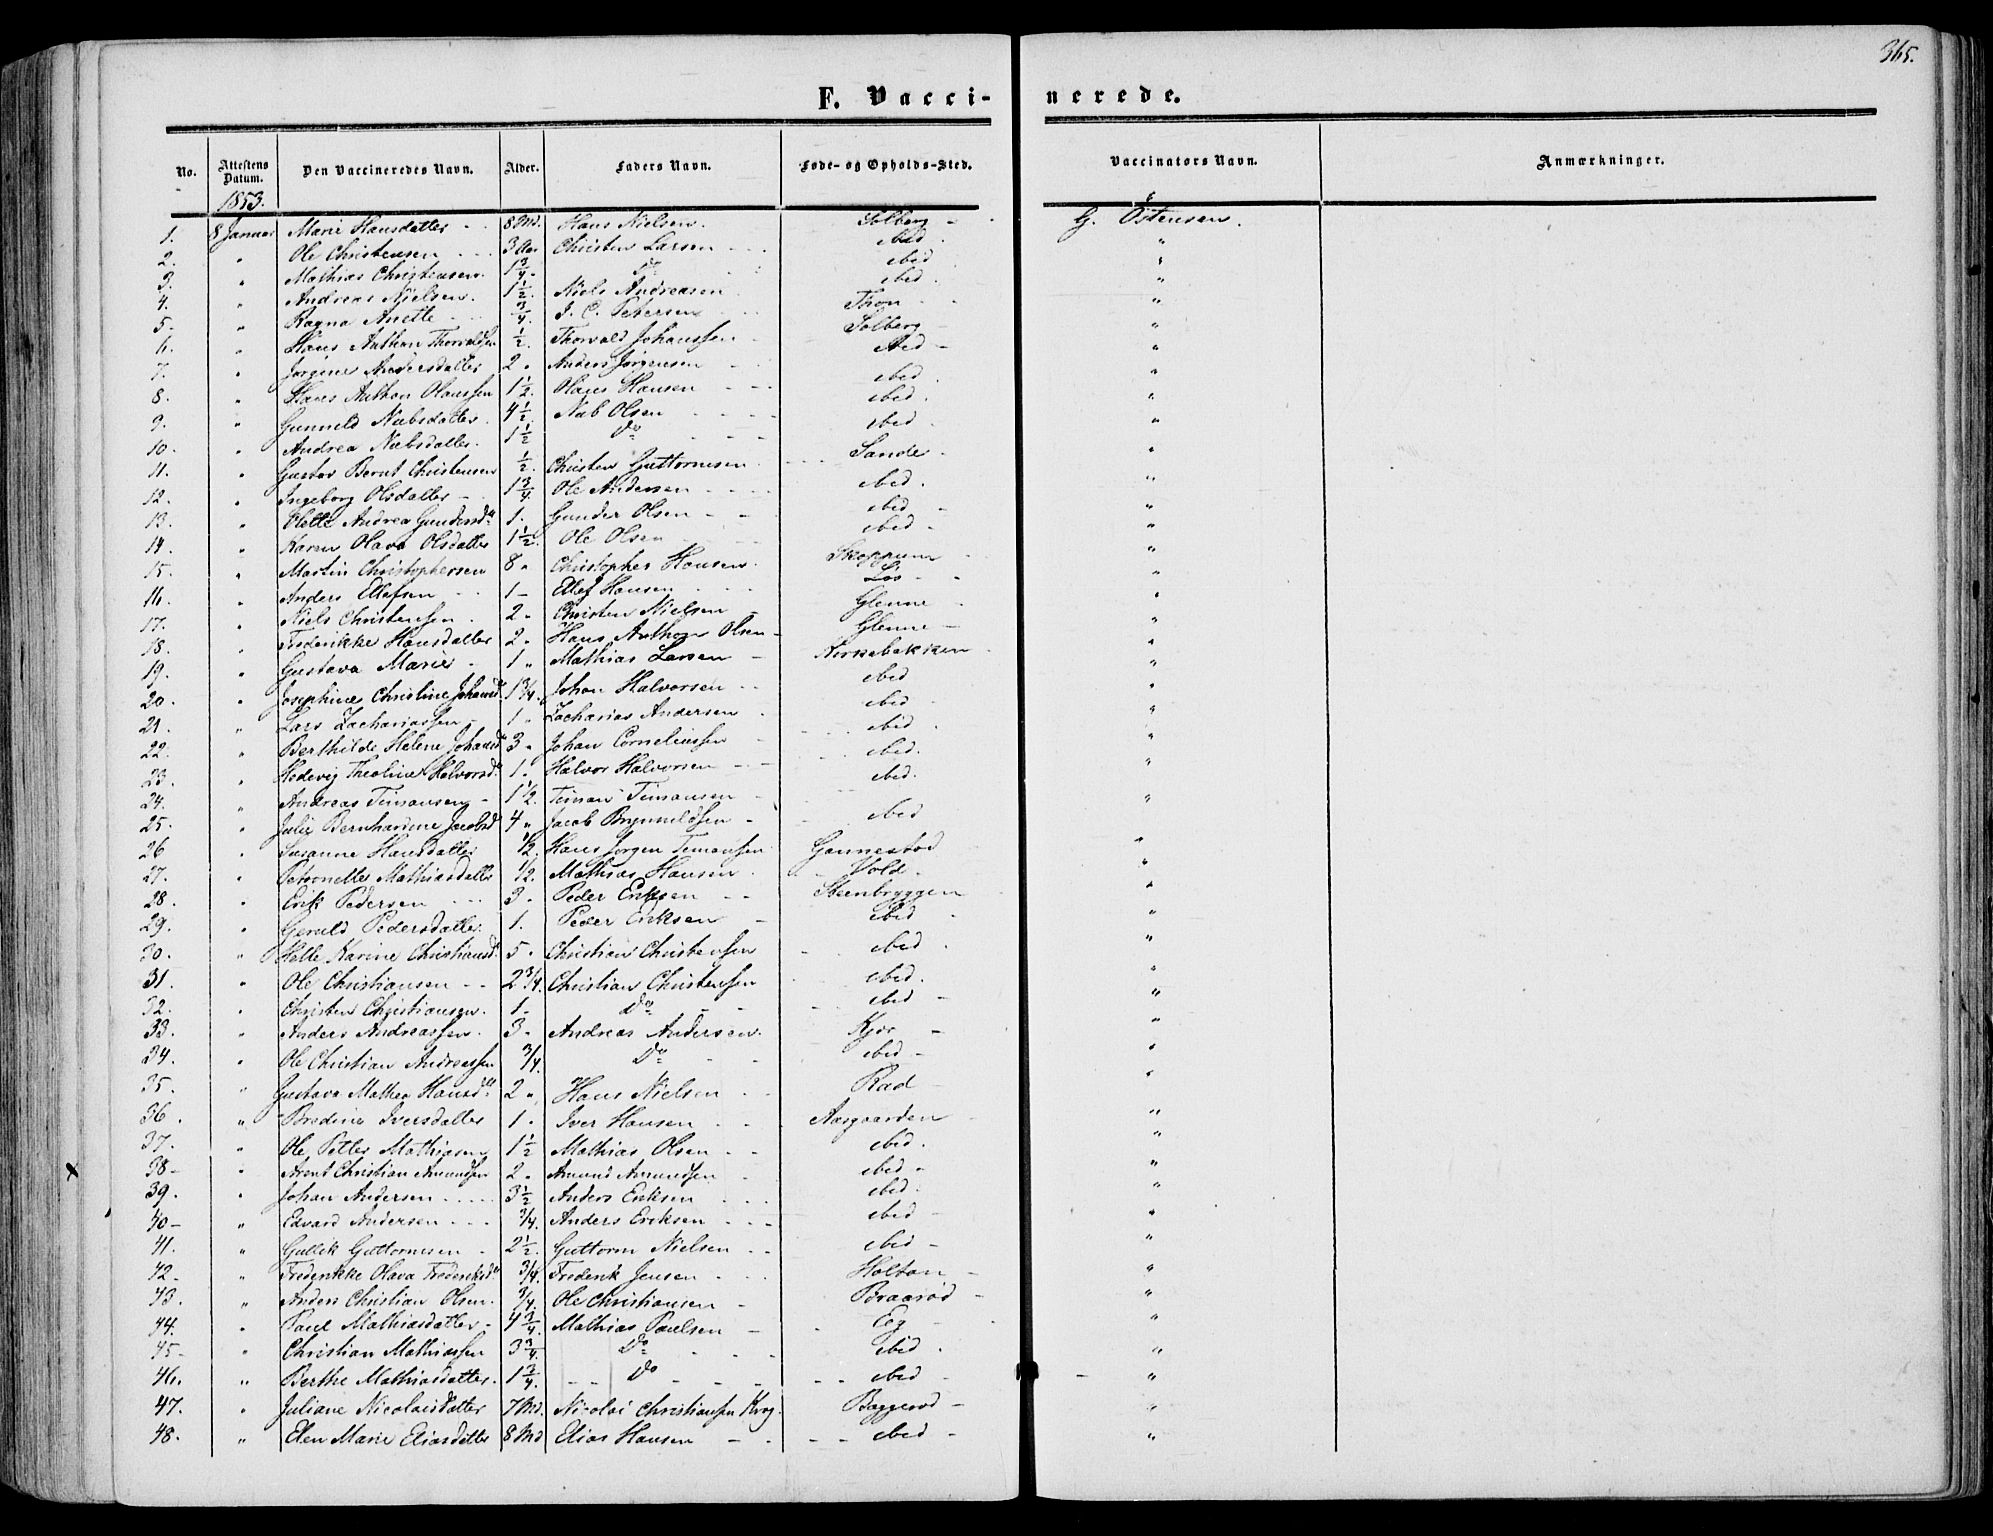 365.
F. Vaccinerede.
No. Attestens Datum. Den Vaccineredes Navn. Alder. Faders Navn. Føde- og Opholds-Sted. Vaccinators Navn. Anmærkninger.
1853.
1. 8 Januar Marie Hansdatter 8 Md. Hans Nielsen. Solberg G. Østensen.
2. " Ole Christensen 3 Aar Christen Larsen ibid. "
3. " Mathias Christensen. 1 3/4. Do ibid "
4. " Andreas Nielsen. 1 1/2. Niels Andreasen ibid. "
5. " Ragna Anette 3/4. J. C. Petersen Thon "
6. " Hans Anthon Thorvaldsen 1/2. Thorvald Johanssen Solberg "
7. " Jørgine Andersdatter 2 " Anders Jørgensen ibid "
8. " Hans Anthon Olaussen 1 1/2. Olaus Hansen ibid. "
9. " Gunnild Nubsdatter 4 1/2. Nub Olsen ibid. "
10. " Andrea Nubsdatter. 1 1/2 Do ibid. "
11. " Gustav Bernt Christensen 1/2. Christen Guttormsen Sande. "
12. " Ingeborg Olsdatter 1 3/4. Ole Andersen ibid. "
13. " Helle Andrea Gundersd. 1. Gunder Olsen ibid "
14. " Karen Olava Olsdatter 1 1/2. Ole Olsen ibid "
15. " Martin Christophersen 8 " Christopher Hansen. Skoppum "
16. " Anders Ellefsen 1 Ellef Hansen "
17. " Niels Christenssen. 2 " Christen Nielsen Glenne "
18. " Frederikke Hansdatter 2. Hans Anthon Olsen Glenne "
19. " Gustava Marie 1 " Mathias Larsen "
20. " Josephine Christine Johansd. 1 3/4. Johan Halvorsen ibid "
21. " Lars Zachariassen 1 " Zacharias Andersen ibid "
22. " Berthilde Helene Johansd. 3 " Johan Corneliussen ibid. "
23. " Hedevig Theoline Halvorsd. 1. Halvor Halvorsen ibid. "
24. " Andreas Timansen 1 1/2. Timan Timansen ibid. "
25. " Julie Bernhardine Jacobsd 4 " Jacob Brynnildsen ibid "
26 " Susanne Hansdatter 1/2. Hans Jørgen Timanssen Gannestad "
27. " Petronelle Mathiasdatter 1/2. Mathias Hansen Vold. "
28. " Erik Pedersen 3. Peder Eriksen Steenbryggen "
29. " Geruld Pedersdatter. 1. Peder Eriksen ibid "
30. " Helle Karine Christiansd. 5 " Christian Christenssen ibid "
31. " Ole Christiansen 2 3/4. Christian Christenssen ibid. "
32. " Christen Christiansen. 1 Do ibid "
33. " Anders Andreassen. 3 " Andreas Andersen. Kjær "
34. " Ole Christian Andreassen 3/4. Do ibid "
35. " Gustava Mathea Hansd. 2 " Hans Nielsen Rad "
36. " Bredine Iversdatter 1 " Iver Hansen Aasgaarden "
37. " Ole Petter Mathiasen 1 1/2 Mathias Olsen ibid. "
38 " Arent Christian Amundsen 2 " Amund Amundsen ibid "
39. " Johan Andersen 3 1/2 Anders Eriksen ibid. "
40 " Edvard Andersen 3/4. Anders Eriksen ibid "
41. " Gullik Guttormsen 2 1/2. Guttorm Nielsen ibid "
42 " Frederikke Olava Frederiksd. 3/4. Frederik Jensen Holtan "
43. " Anders Christian Olsen. 3/4. Ole Christiansen Braarød "
44. " Paul Mathiasdatter 4 3/4. Mathias Paulsen Eeg "
45 " Christian Mathiassen 3 3/4. Do ibid. "
46. " Berthe Mathiasdatter. 1 3/4. Do ibid "
47. " Juliane Nicolaisdatter 7 Md. Nicolai Christiansen Krog. Baggerød "
48. " Elen Marie Eliasdatter 8 Md Elias Hansen ibid "